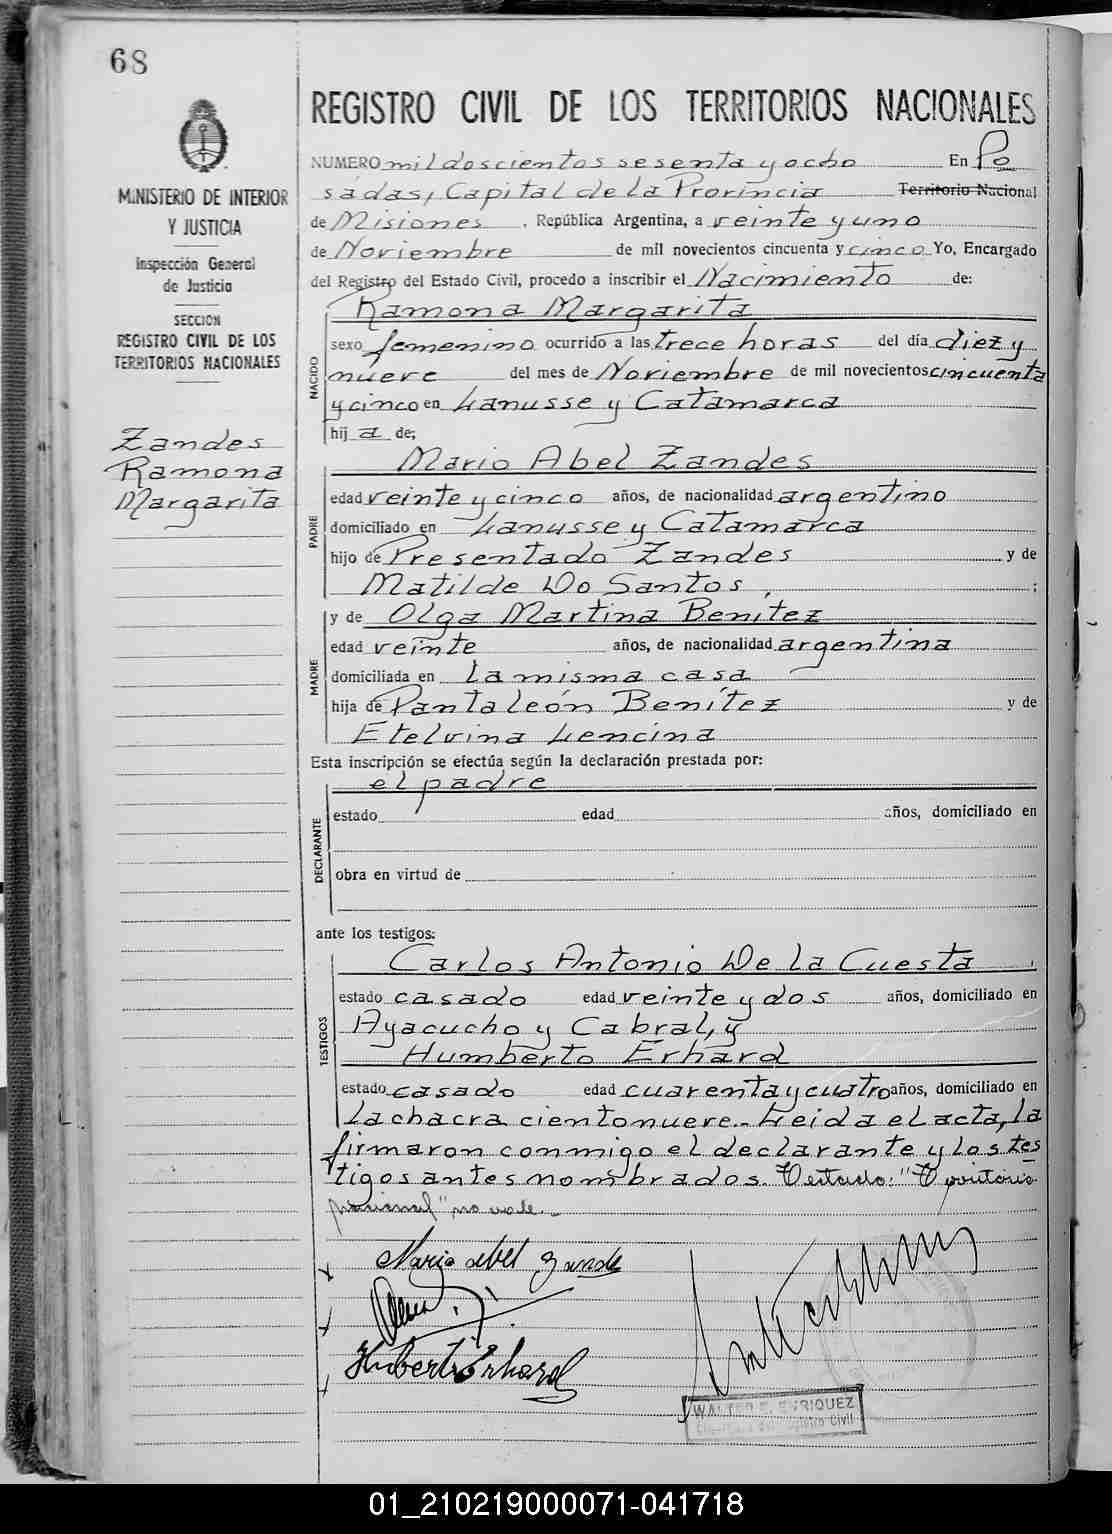 68
MINISTERIO DE INTERIOR
Y JUSTICIA
Inspección General
de Justicia
SECCION
REGISTRO CIVIL DE LOS
TERRITORIOS NACIONALES
Zandes
Ramona
Margarita
REGISTRO CIVIL DE LOS TERRITORIOS NACIONALES
NUMERO mil doscientos sesenta y ocho En Po
sadas, Capital de la Provincia Territorio Nacional
de Misiones, República Argentina, a veinte y uno
de Noviembre de mil novecientos cincuenta y cinco Yo, Encargado
del Registro del Estado Civil, procedo a inscribir el Nacimiento de:
NACIDO
Ramona Margarita
sexo femenino ocurrido a las trece horas del día diez y
nueve del mes de Noviembre de mil novecientos cincuenta
y cinco en Lanusse y Catamarca
hij a de:
PADRE
Mario Abel Zandes
edad veinte y cinco años, de nacionalidad argentino
domiciliado en Lanusse y Catamarca
hijo de Presentado Zandes y de
Matilde Do Santos, ;
MADRE
y de Olga Martina Benítez
edad veinte años, de nacionalidad argentina
domiciliada en la misma casa
hija de Pantaleón Benítez y de
Etelvina Lencina
Esta inscripción se efectúa según la declaración prestada por:
DECLARANTE
el padre
estado edad años, domiciliado en
obra en virtud de
ante los testigos:
TESTIGOS
Carlos Antonio De la Cuesta
estado casado edad veinte y dos años, domiciliado en
Ayacucho y Cabral, y
Humberto Erhard
estado casado edad cuarenta y cuatro años, domiciliado en
la chacra ciento nueve.- Leida el acta, la
firmaron conmigo el declarante y los tes
tigos antes nombrados. Testado: "Territorio
nacional" no vale.-
Mario Abel Zandes
Humberto Erhard
WALTER E. ENRIQUEZ
Registro Civil
01_210219000071-041718